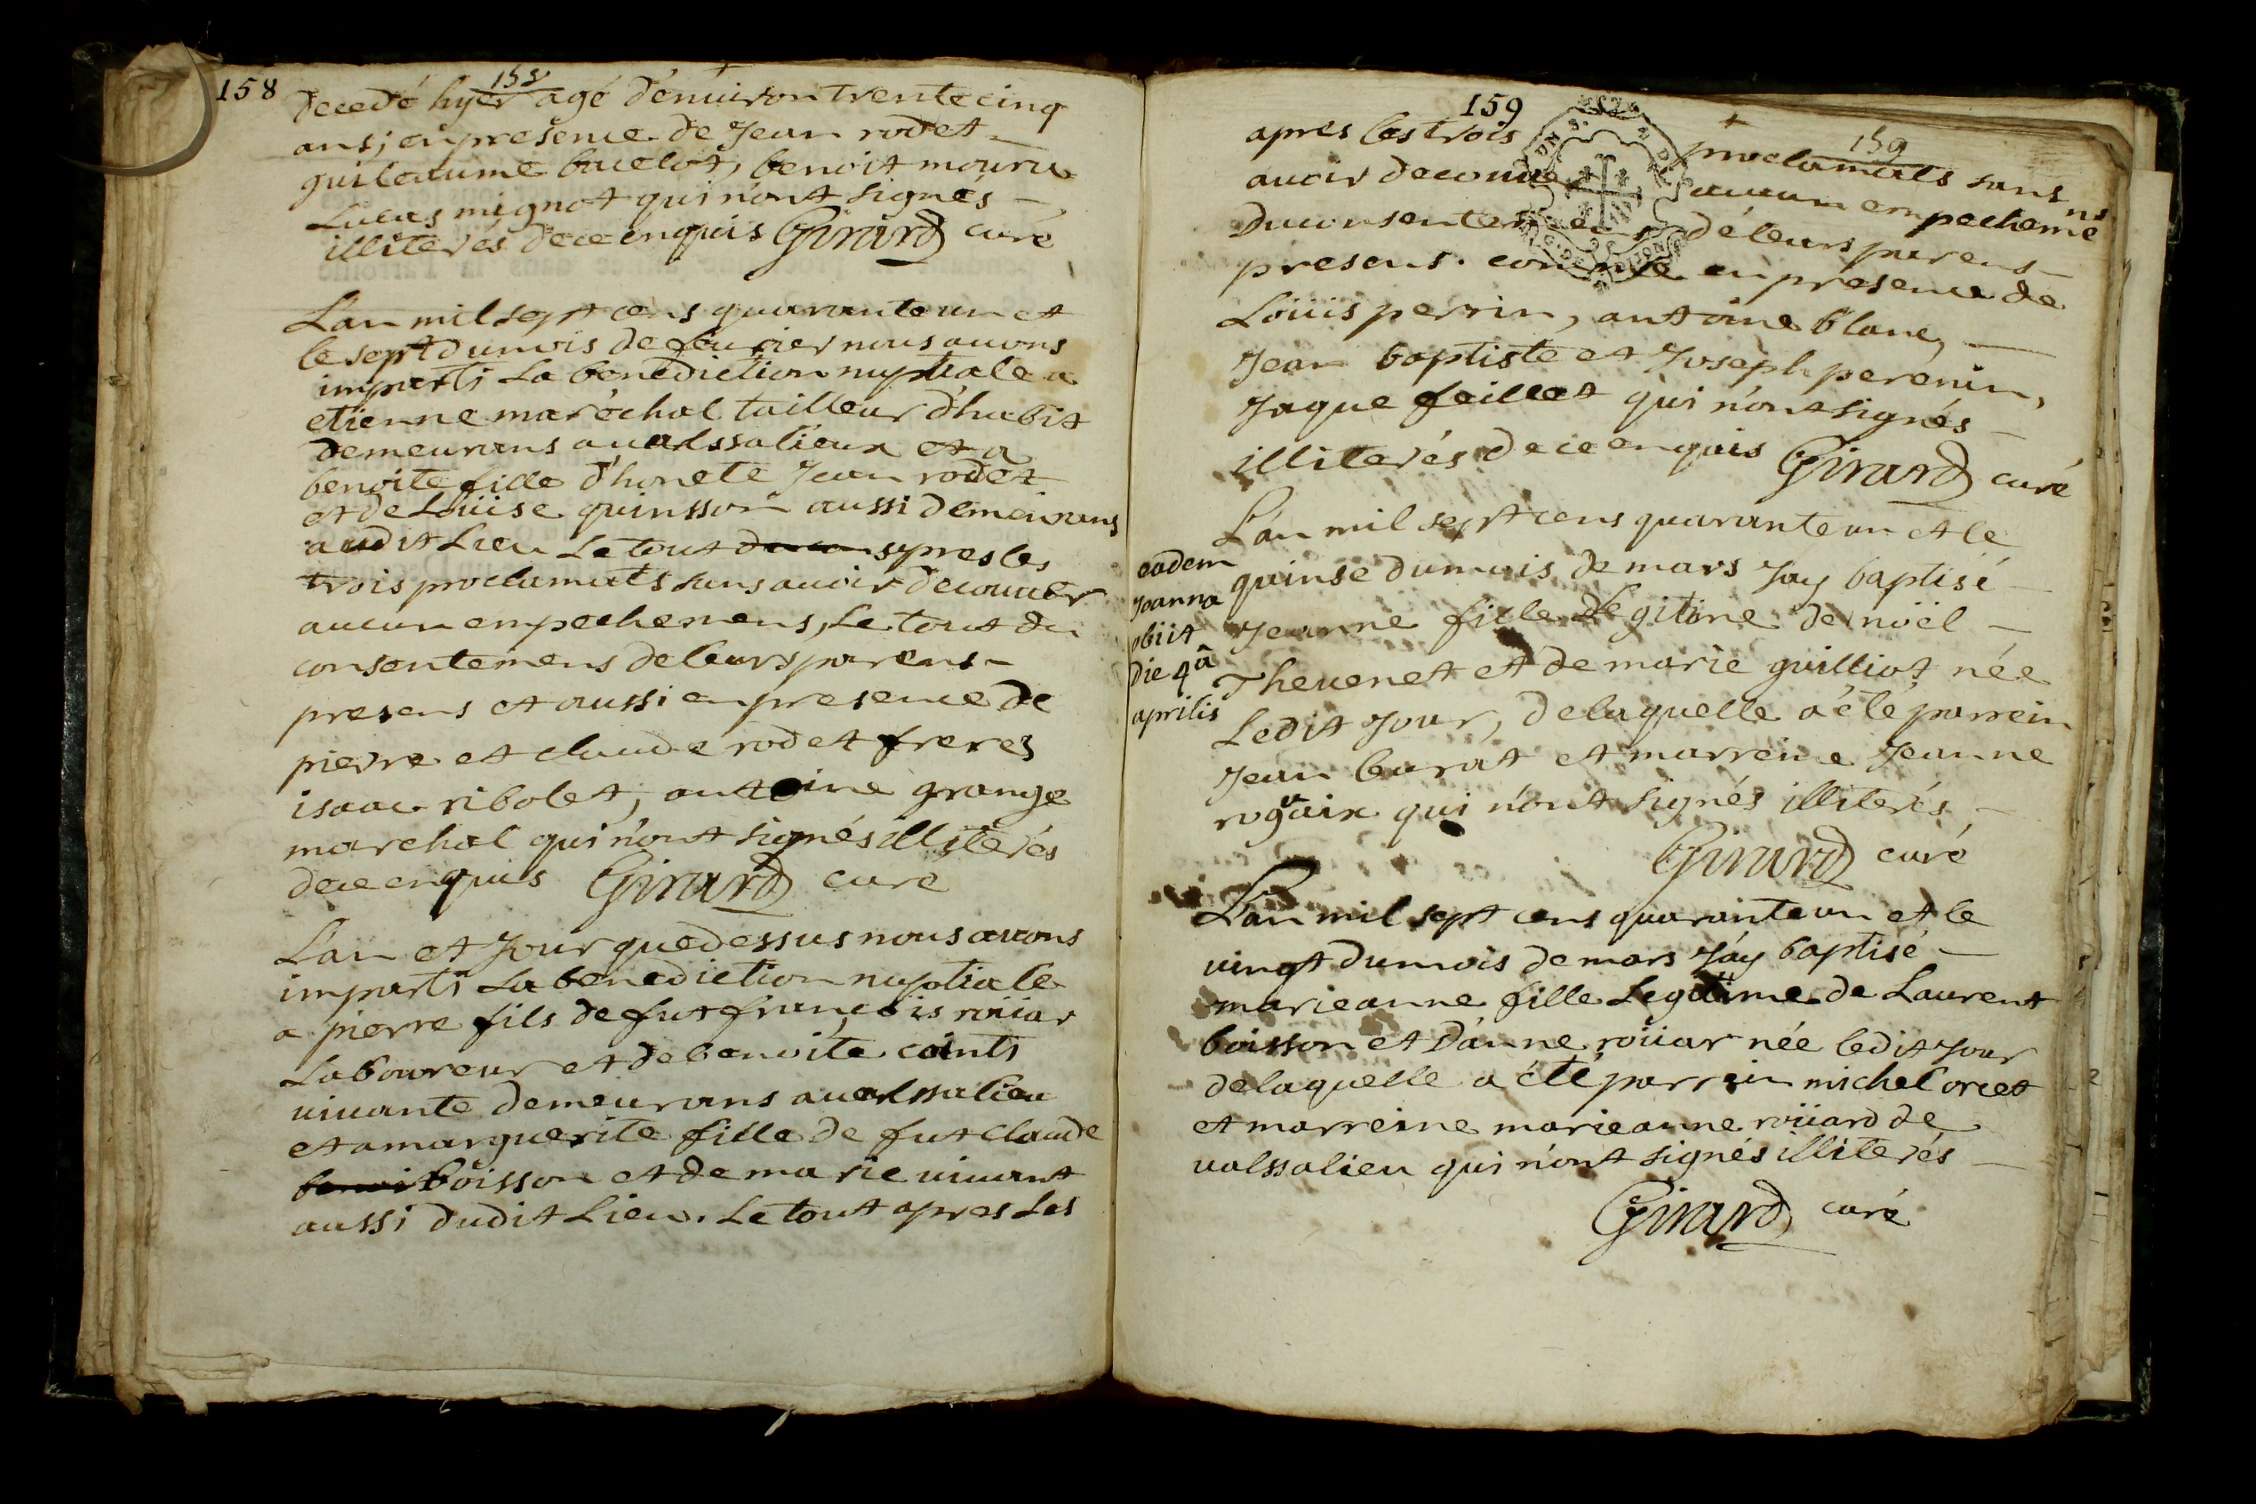 158
158
decedé hyer agé d'enuiron trente cinq
ans, en presence de Jean rodet
guileaume bacelot, benoit mouru
Lucas mignot qui n'ont signés
illiterés de ce enquis Girard curé
Lan mil sept cens quarante un et
le sept du mois de feurier nous auons
imparti La benediction nuptiale a
etienne maréchal tailleur d'habit
demeurans a ualssalieux et a
benoite fille d'honete Jean rodet
et de Loüise quinsson aussi demeurans
audit Lieu Le tout apres les
trois proclamats sans auoir decouuer
aucun empechemens, Le tout du
consentemens de leurs parens
presens et aussi en presence de
pierre et claude rodet freres
isaac ribolet, antoine grange
marchal qui n'ont signés illiterés
de ce enquis Girard curé
Lan et Jour que dessus nous auons
imparti La benediction nuptiale
a pierre fils de fut francois roüiar
Laboureur et de benoite cointi
uiuante demeurans a ualssalieu
et a marguerite fille de fut claude
boisson et de marie uiuant
aussi dudit Lieu. Le tout apres Les
159
159
apres les trois proclamats sans
auoir decouuer aucun empecheme
ns
du consentemens de leurs parens
presens. comme en presence de
Loüis perrin, antoine blanc,
Jean baptiste et Joseph perenin,
Jaque feillet qui n'ont signés
illiterés de ce enquis Girard curé
L'an mil sept cens quarante un et le
quinse du mois de mars Jay baptisé
Jeanne fille Legitime de noël
Theuenet et de marie guilliot née
Ledit Jour, de laquelle a été parrein
Jean burat et marreine Jeanne
roguaix qui n'ont signés illiterés
Girard curé
eadem
Joanna
obiit
die 4â
aprilis
L'an mil sept cens quarante un et le
uingt du mois de mars Jáy baptisé
marieanne fille Legitime de Laurent
boisson et D'anne roüiar née ledit Jour
de laquelle a été parrein michel orcet
et marreine marieanne roüiard de
ualssalieu qui n'ont signés illiterés
Girard curé